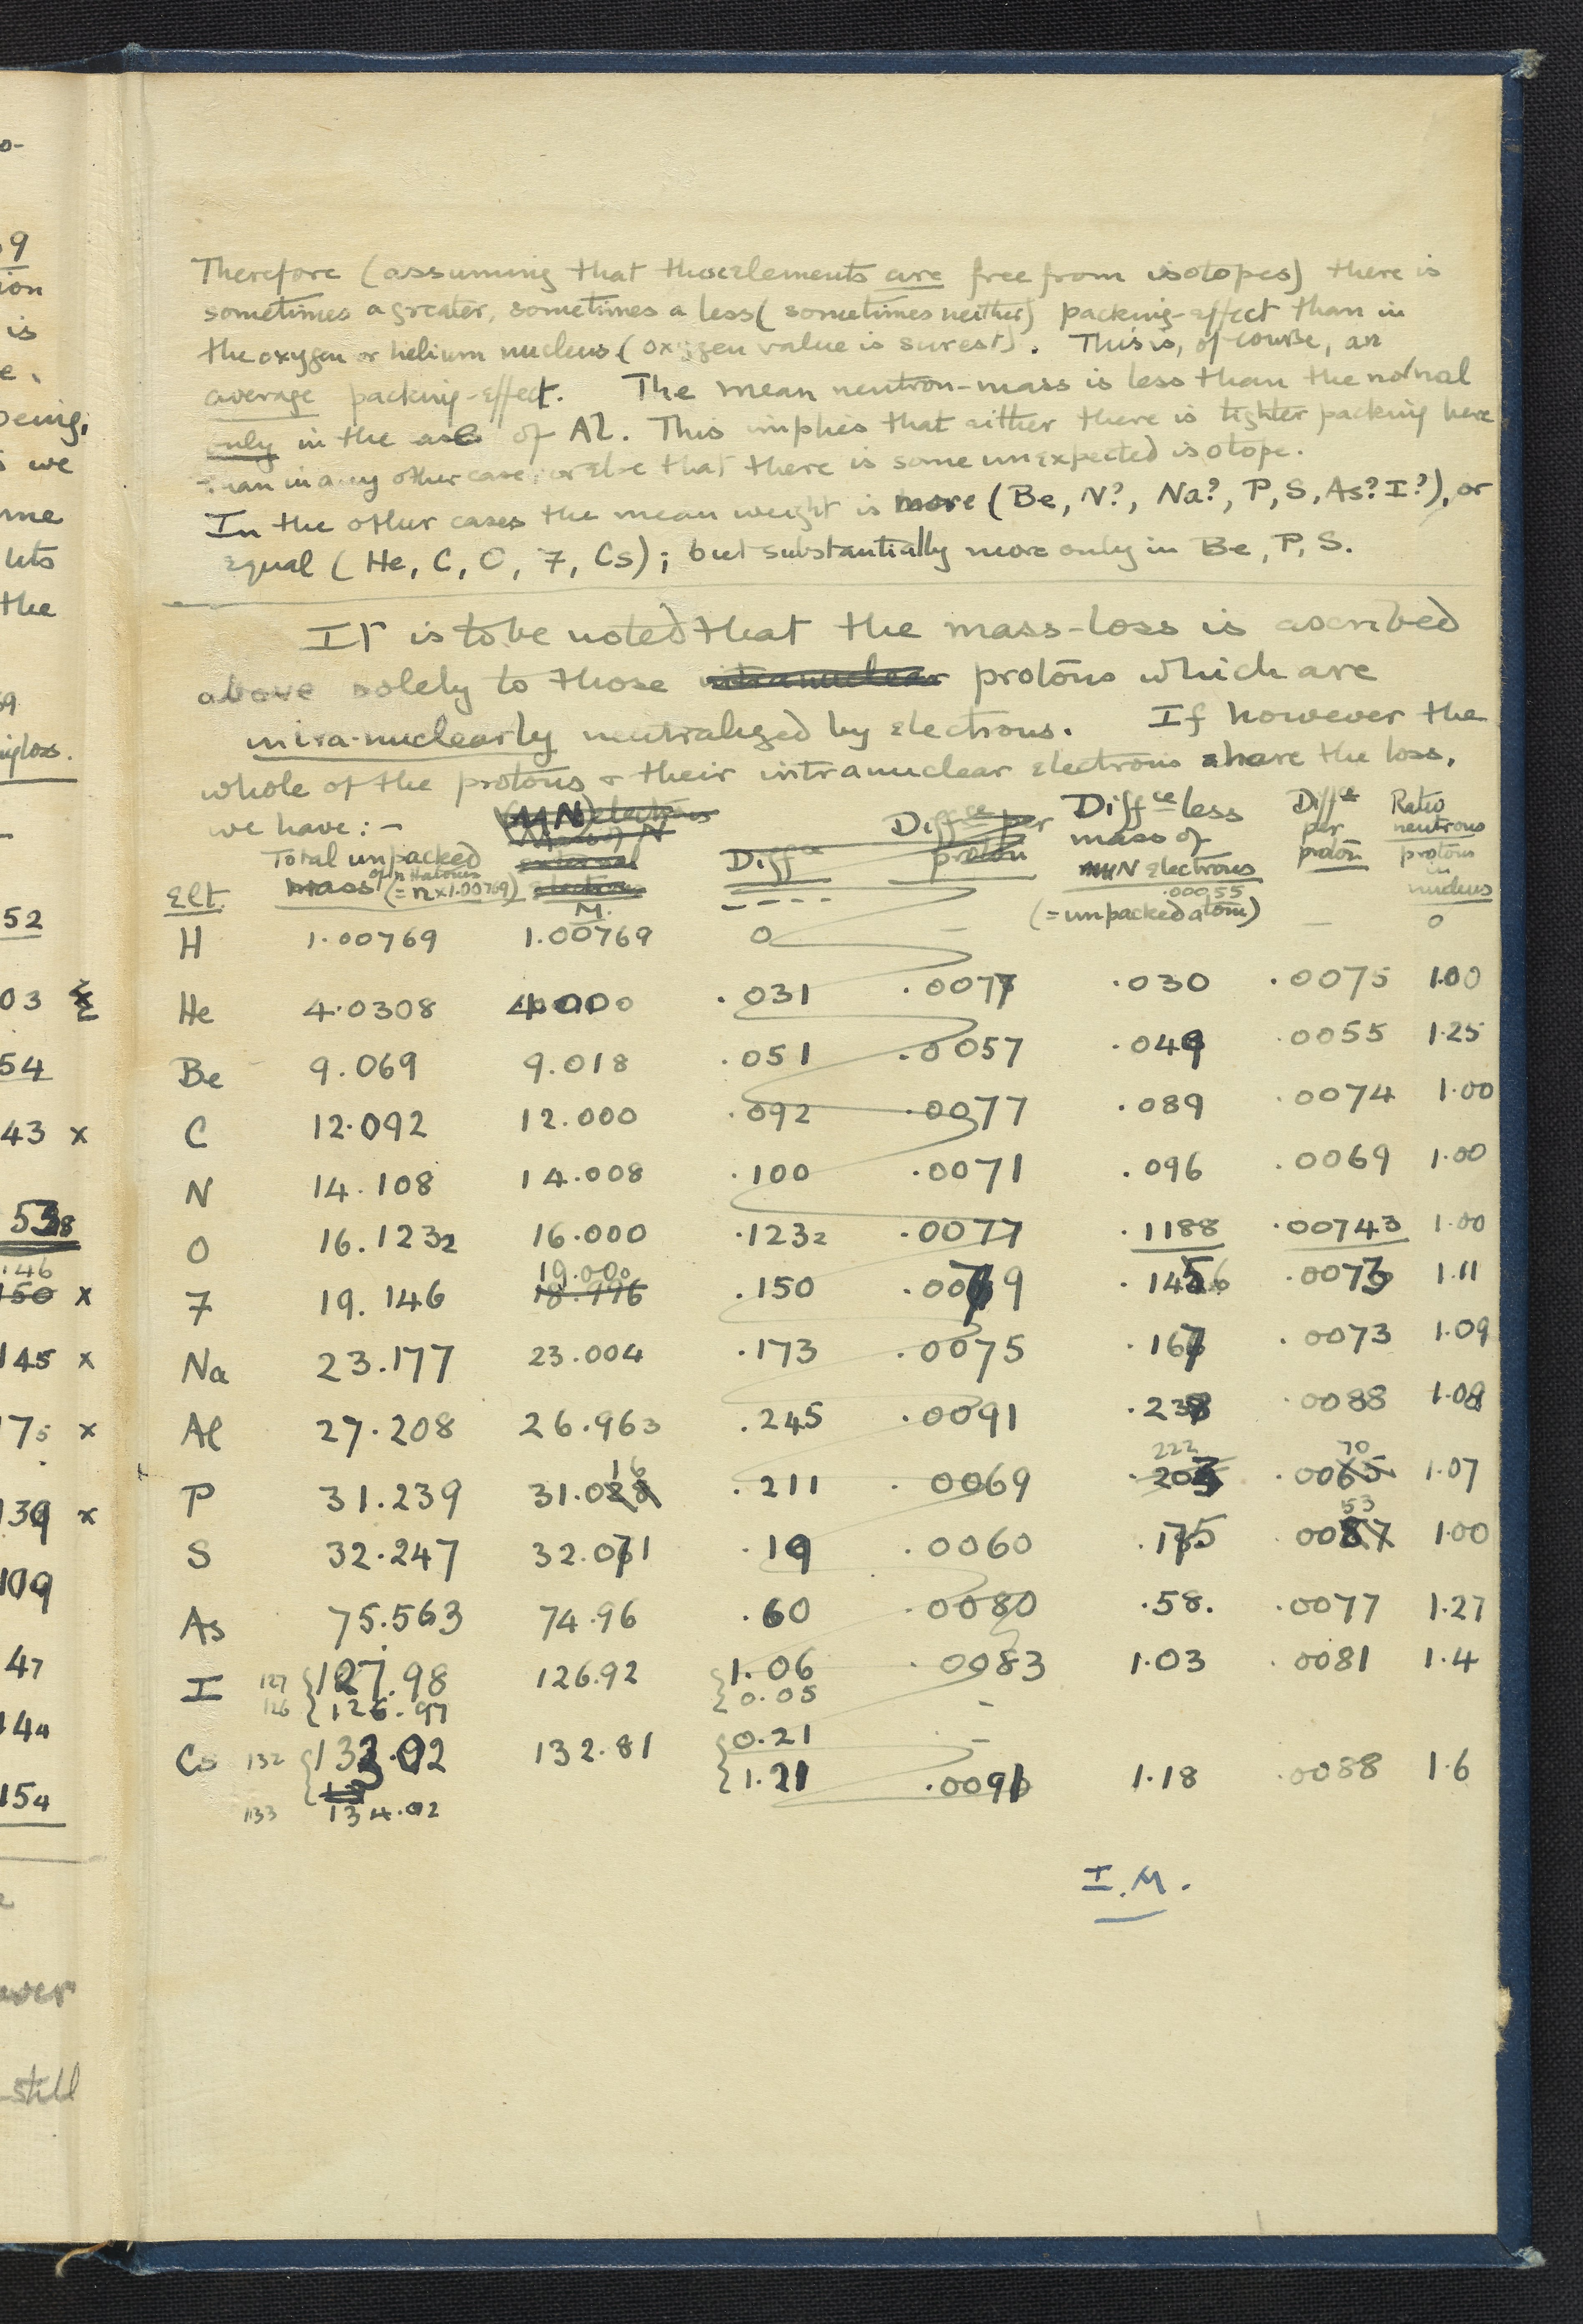 Therefore (assuming that these elements are free from isotopes) there is
sometimes a greater, sometimes a less (sometimes neither) packing-effect than in
the oxygen or helium nucleus (oxygen value is surest). This is, of course, an
average packing-effect. The mean neutron-mass is less than the normal
only in the case of Al. This implies that either there is tighter packing here
than in any other case, or else that there is some unexpected isotope.
In the other cases the mean weight is more (Be, N?, Na?, P, S, As? I?), or
equal (He, C, O, F, Cs); but substantially more only in Be, P, S.
It is to be noted that the mass-loss is ascribed
above solely to those intranuclear protons which are
intra-nuclearly neutralized by electrons. If however the
whole of the protons & their intranuclear electrons share the loss,
we have:-
Elt. Total unpacked mass of n H atoms (= n x 1.00769) M. Diffce Diffce per proton Diffce less mass of N electrons .00055 (= unpacked atom) Diffce per proton Ratio neutrons protons in nucleus
H 1.00769 1.00769 0 - — 0
He 4.0308 4.000 .031 .0077 .030 .0075 1.00
Be 9.069 9.018 .051 .0057 .049 .0055 1.25
C 12.092 12.000 .092 .0077 .089 .0074 1.00
N 14.108 14.008 .100 .0071 .096 .0069 1.00
O 16.1232 16.000 .1232 .0077 .1188 .00743 1.00
F 19.146 18.996 19.000 .150 .0079 .0073 1.11
Na 23.177 23.004 .173 .0075 .167 .0073 1.09
Al 27.208 26.963 .245 .0091 .238 .0088 1.08
P 31.239 31.028 16 .211 .0069 .203 222 .0065 70 1.07
S 32.247 32.071 .19 .0060 .175 .0057 53 1.00
As 75.563 74.96 .60 .0080 .58. .0077 1.27
I 127 127.98 126.92 1.06 .0083 1.03 .0081 1.4
126 126.97 0.05
Cs 132 133.02 132.81 0.21 -
1.21 .0091 1.18 .0088 1.6
133 134.02
I.M.
9
ion
is
we
the
52
03
54
43 x
538
.46
150 x
145 x
175 x
139 x
109
47
144
154
still